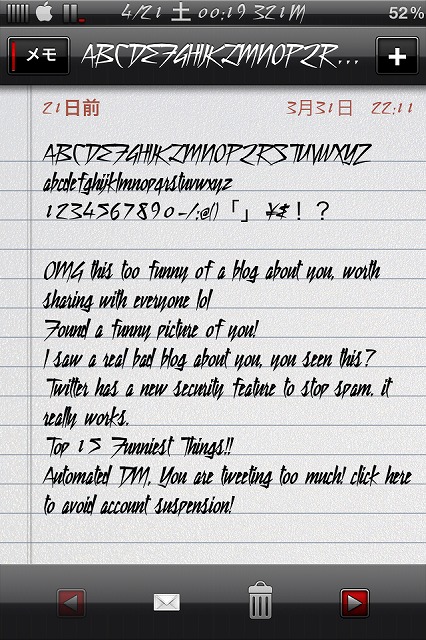 4/21 土 00:19 321M 52%
メモ ABCDEFGHIJKLMNOPQR... +
21日前 3月31日 22:11
ABCDEFGHIJKLMNOPQRSTUVWXYZ
abcdefghijklmnopqrstuvwxyz
1234567890-/:@()「」¥$！？
OMG this too funny of a blog about you, worth
sharing with everyone lol
Found a funny picture of you!
I saw a real bad blog about you, you seen this?
Twitter has a new security feature to stop spam. it
really works.
Top 15 Funniest Things!!
Automated DM, You are tweeting too much! click here
to avoid account suspension!